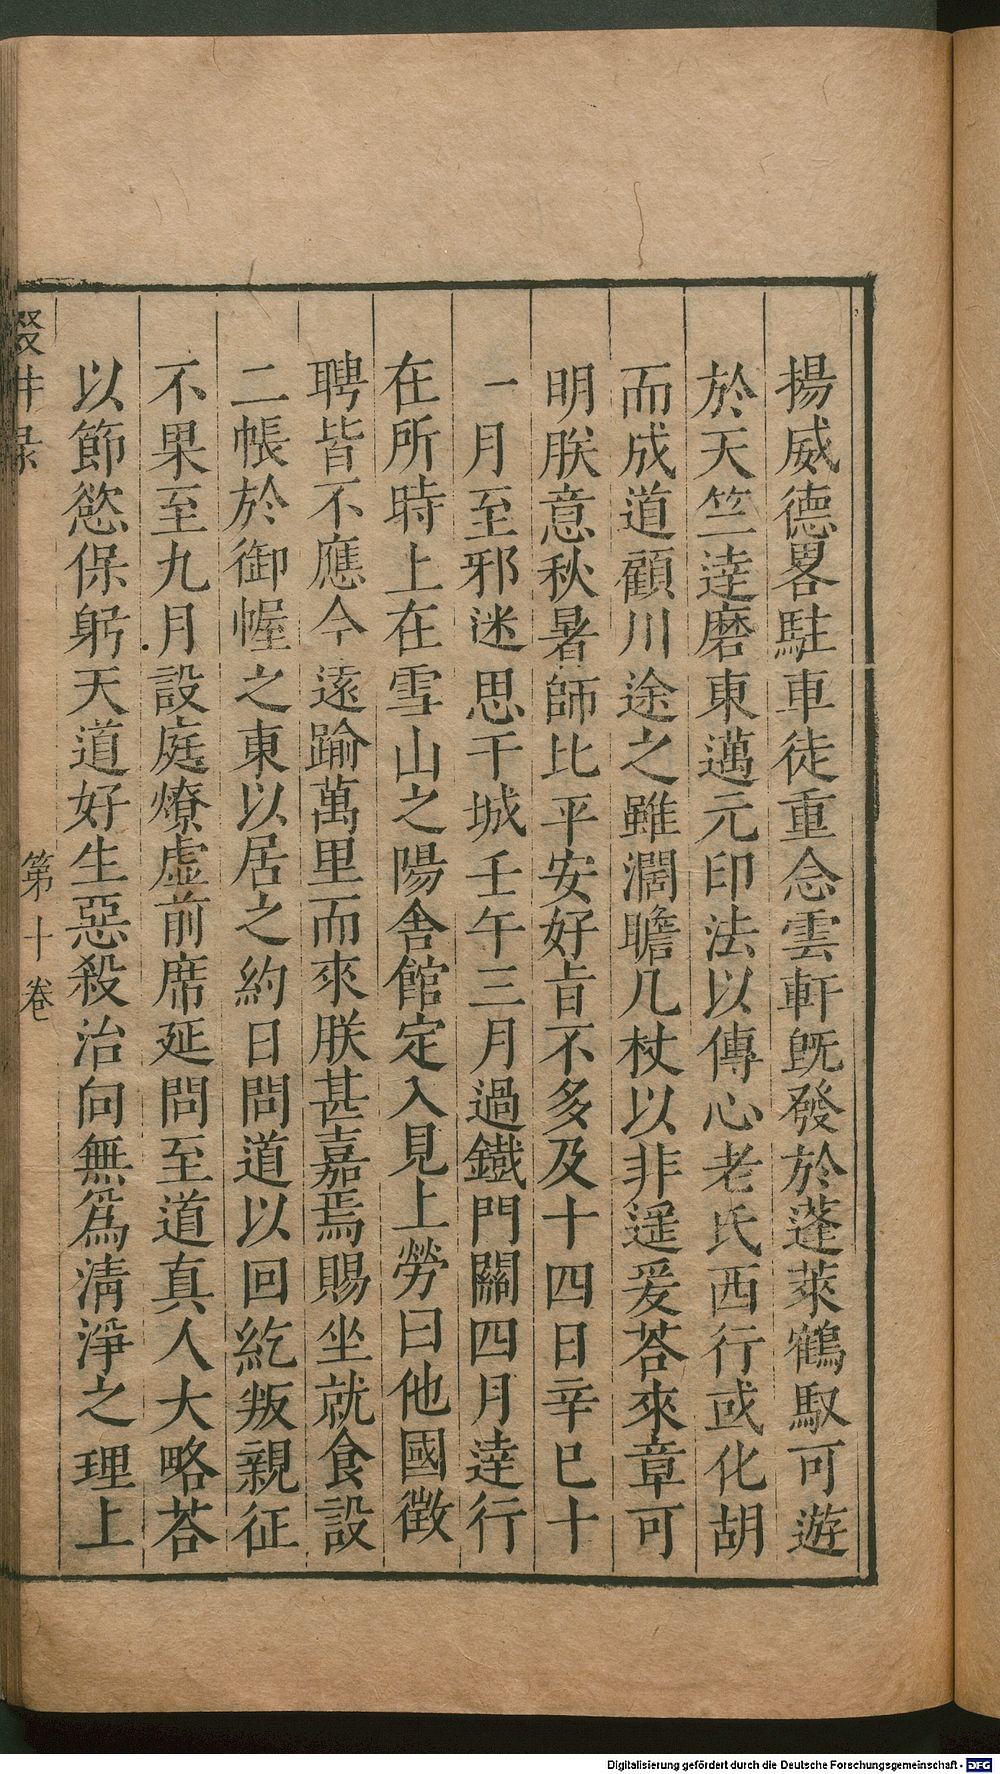 揚威德畧駐車徒重念雲軒旣發於蓬萊鶴馭可遊
於天竺逹磨東邁元印法以傳心老氏西行或化胡
而成道顧川途之雖濶瞻几杖以非遥爰荅來章可
明朕意秋暑師比平安好㫖不多及十四日辛巳十
一月至邪迷思干城壬午三月過鐵門關四月逹行
在所時上在雪山之陽舍館定入見上勞曰他國徵
聘皆不應今遠踰萬里而來朕甚嘉焉賜坐就食設
二帳於御幄之東以居之約日問道以回紇叛親征
不果至九月設庭燎虛前席延問至道真人大略荅
以節慾保躬天道好生惡殺治尚無爲清淨之理上
輟耕录 第十卷
Digitalisierung gefördert durch die Deutsche Forschungsgemeinschaft - DFG